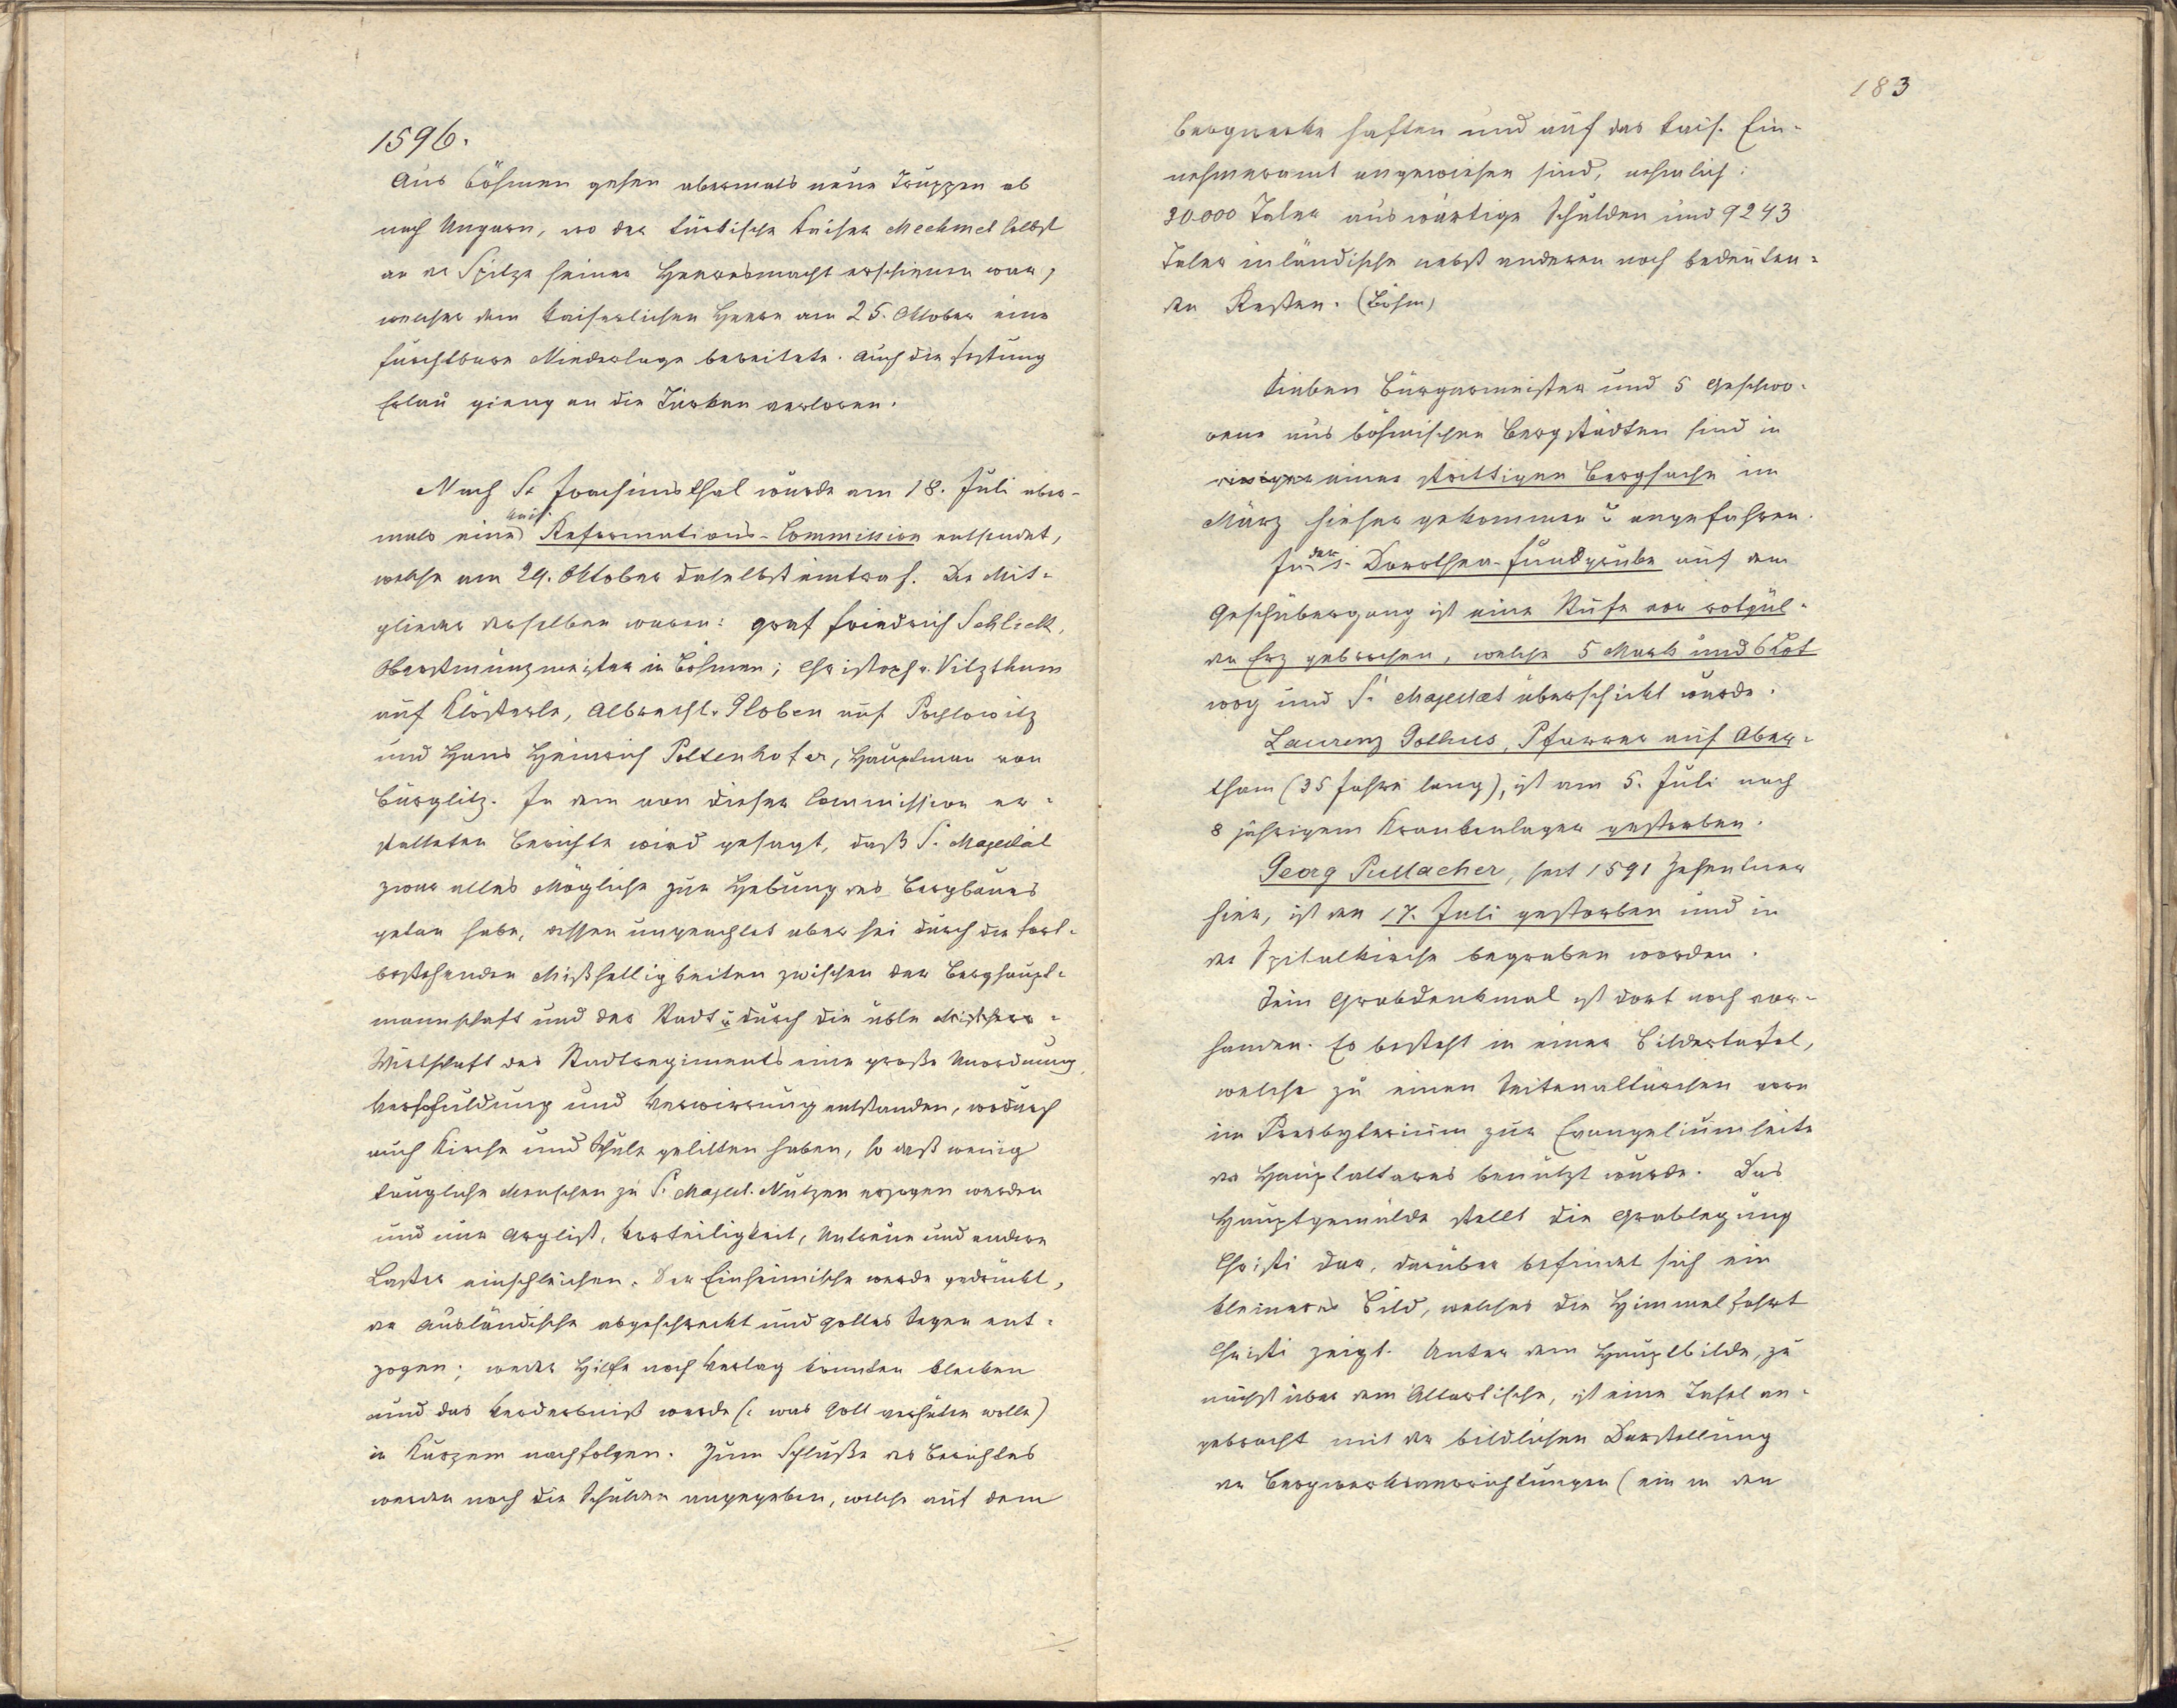 1596.
Aus Böhmen gehen abermals neue Truppen ab
nach Ungarn, wo der türkische Kaiser Mechmet selbst
an der Spitze seiner Heeresmacht erschienen war,
welcher dem kaiserlichen Heere am 25. Oktober eine
furchtbare Niederlage bereitete. Auch die Festung
Erlau gieng an die Türken verloren.
Nach St Joachimsthal wurde am 18. Juli aber-
kais.
mals eine Reformations-Commission entsendet,
welche am 29. Oktober daselbst eintraf. Die Mit-
glieder derselben waren: Graf Friedrich Schlick,
Oberstmünzmeister in Böhmen; Christoph v. Vitzthum
auf Klösterle, Albrecht v. Globen auf Pochlowitz
und Hans Heinrich Poltenhofer, Hauptman von
Bürglitz. In dem von dieser Commission er-
statteten Berichte wird gesagt, daß S. Majestät
zwar alles Mögliche zur Hebung des Bergbaues
getan habe, dessen ungeachtet aber sei durch die fort-
bestehenden Mißhelligkeiten zwischen der Berghaupt-
mannschaft und der Stadt u. durch die üble
Wirtschaft des Stadtregiments eine große Unordnung,
Verschuldung und Verwirrung entstanden, wodurch
auch Kirche und Schule gelitten haben, so daß wenig
taugliche Menschen zu S. Majest. Nutzen erzogen werden
und nur Arglist, Vorteiligkeit, Untreue und andere
Laster einschleichen. Der Einheimische werde gedrückt,
der Ausländische abgeschreckt und Gottes Segen ent-
zogen; weder Hilfe noch Verlag könnten kleiben
und das Verderbniß werde (: was Gott verhüten wolle)
in Kurzem nachfolgen. Zum Schluße des Berichtes
werden noch die Schulden angegeben, welche auf dem
183
Bergwerke haften und auf das kais. Ein-
nehmeramt angewiesen sind, nehmlich:
30.000 Taler auswärtige Schulden und 9243
Taler inländische nebst anderen noch bedeuten-
den Resten. (Böhm)
Sieben Bürgermeister und 5 Geschwo-
rene aus böhmischen Bergstädten sind in
einer strittigen Bergsache im
März hieher gekommen u. angefahren.
In der S. Dorothea-Fundgrube auf dem
Geschübergang ist eine Stufe von rotgül-
den Erz gebrochen, welche 5 Mark und 6 Lot
wog und S. Majestaet überschickt wurde.
Laurenz Pfarrer auf Aber-
tham (35 Jahre lang), ist am 5. Juli nach
8 jährigem Krankenlager gestorben.
Georg Pullacher, seit 1591 Zehentner
hier, ist den 17. Juli gestorben und in
der Spitalkirche begraben worden.
Sein Grabdenkmal ist dort noch vor-
handen. Es besteht in einer Bildertafel,
welche zu einen Seitenaltärchen vorn
im Presbyterium zur Evangeliumseite
des Hauptaltares benützt wurde. Das
Hauptgemälde stellt die Grablegung
Christi dar, darüber befindet sich ein
kleineres Bild, welches die Himmelfahrt
Christi zeigt. Unter dem Hauptbilde, zu
nächst über dem Altartische, ist eine Tafel an-
gebracht mit der bildlichen Darstellung
der Bergwerksverrichtungen (ein in den